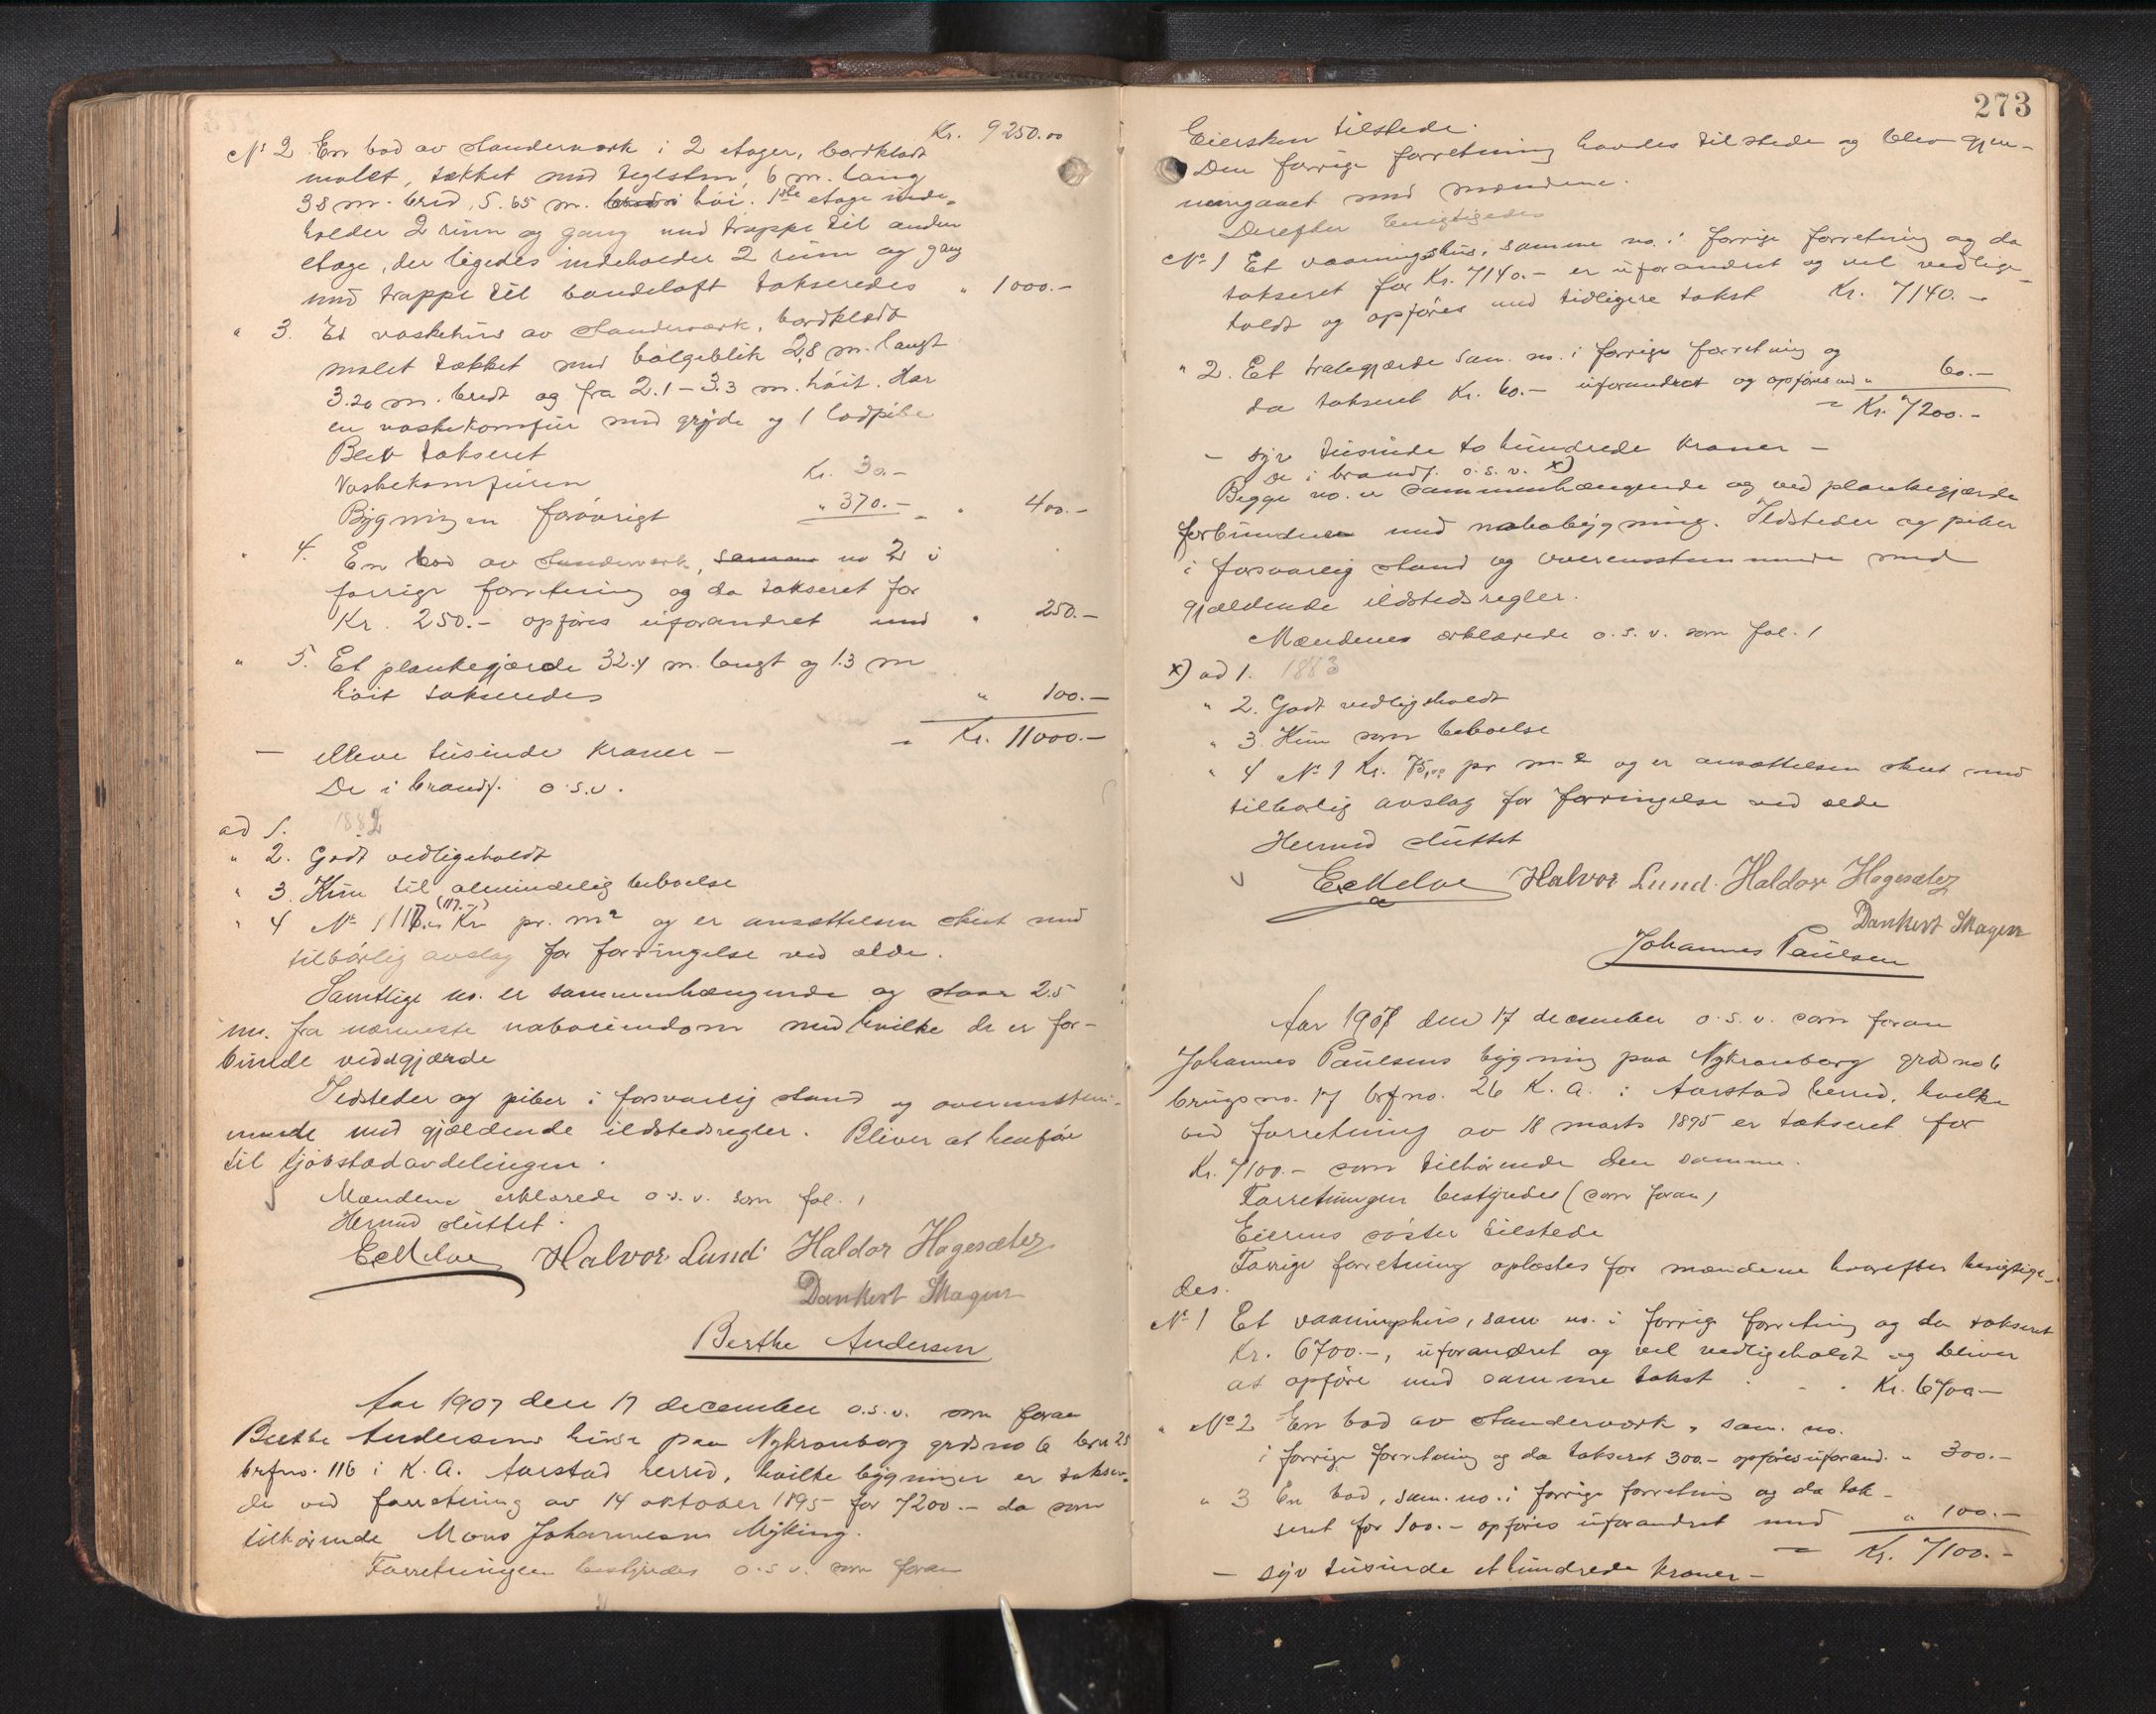 Kr. 9250.00
No 2 En bod av standerværk i 2 etager, bordklædt
malet, tækket med teglsten, 6 m. lang
3.8 m. bred, 5.65 m. høi. 1ste etage inde-
holder 2 rum og gang med trappe til anden
etage, der ligedes indeholder 2 rum og gang
med trappe til baandeloft takseredes " 1000.-
" 3. Et vaskehus av standerværk, bordklædt
malet tækket med bølgeblik 2.8 m. langt
3.20 m. bredt og fra 2.1 - 3.3 m. høit. Har
en vaskekomfur med gryde og 1 lodpibe
Blev takseret
Vaskekomfuren Kr. 30.-
Bygningen forøvrigt " 370.- = " 400.-
" 4. En bod av standerværk, samme no 2 i
forrige forretning og da takseret for
Kr. 250.- opføres uforandret med " 250.-
" 5. Et plankegjærde 32.4 m. langt og 1.3 m
høit takseredes " 100.-
- elleve tusinde kroner - = Kr. 11000.-
De i brandf. o.s.v.
ad 1. 1882
" 2. Godt vedligeholdt
" 3 Kun til almindelig beboelse
(117.-)
" 4 No 1 Kr pr. m2 og er ansættelsen skeet med
tilbørlig avslag for forringelse ved ælde.
Samtlige no. er sammenhængende og staar 2.5
m. fra nærmeste naboeiendom med hvilke de er for-
bundet ved gjærde
Ildsteder og piber i forsvarlig stand og overensstem-
mende med gjældende ildstedsregler. Bliver at henføre
til kjøbstadavdelingen.
Mændene erklærede o.s.v. som fol. 1
Hermed sluttet.
Halvor Lund Haldor Hagesæter
Dankert Skagen
Berthe Andersen
Aar 1907 den 17 december o.s.v. som foran
Berthe Andersens huse paa Nykronborg grdsno 6 brn 25
brfno. 116 i K. A. Aarstad herred, hvilke bygninger er takser-
de ved forretning av 14 oktober 1895 for 7200.- da som
tilhørende Mons Johannesen Myking.
Forretningen bestyredes o.s.v. som foran
273
Eiersken tilstede.
Den forrige forretning havdes tilstede og blev gjen-
nemgaaet med mændene.
Derefter besigtigedes
No 1 Et vaaningshus, samme no. i forrige forretning og da
takseret for Kr. 7140.- er uforandret og vel vedlige-
holdt og opføres med tidligere takst Kr. 7140.-
" 2. Et trælegjærde sam. no. i forrige forretning og
da takseret Kr. 60.- uforandret og opføres med " 60.-
= Kr. 7200.-
- syv tusinde to hundrede kroner -
De i brandf. o.s.v. x)
Begge no. er sammenhængende og ved plankegjærde
forbundne med nabobygning. Ildsteder og piber
i forsvarlig stand og overensstemmende med
gjældende ildstedsregler.
Mændenes erklærede o.s.v. som fol. 1
x) ad 1. 1883
" 2. Godt vedligeholdt
" 3. Kun som beboelse
" 4 No 1 Kr. 75,00 pr m2 og er ansættelsen skeet med
tilbørlig avslag for forringelse ved ælde
Hermed sluttet
Halvor Lund. Haldor Hagesæter
Dankert Skagen
Johannes Paulsen
Aar 1907 den 17 december o.s.v. som foran
Johannes Paulsens bygning paa Nykronborg grdno 6
brugsno. 17 brfno. 26 K. A. i Aarstad herred, hvilke
ved forretning av 18 marts 1895 er takseret for
Kr. 7100.- som tilhørende den samme.
Forretningen bestyredes (som foran)
Eierens søster tilstede
Forrige forretning oplæstes for mændene hvorefter besigtige-
des.
No 1 Et vaaningshus, sam. no. i forrige forretning og da takseret
Kr. 6700.-, uforandret og vel vedligeholdt og bliver
at opføre med samme takst . . . Kr. 6700-
" No 2 En bod av standerværk, sam. no.
i forrige forretning og da takseret 300.- opføres uforand. " 300.-
" 3 En bod, sam. no. i forrige forretning og da tak-
seret for 100.- opføres uforandret med " 100.-
= Kr. 7100.-
- syv tusinde et hundrede kroner -